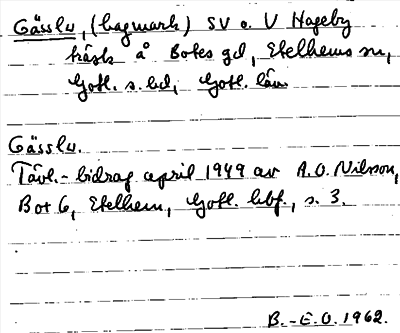 Gässlu, (hagmark) SV o. V Hageby
träsk å Botes gd, Etelhems sn,
Gotl. s. hd, Gotl. län
Gässlu.
Tävl.-bidrag april 1949 av A.O. Nilsson,
Bot 6, Etelhem, Gotl. hbf., s. 3.
B.-E.O. 1962.